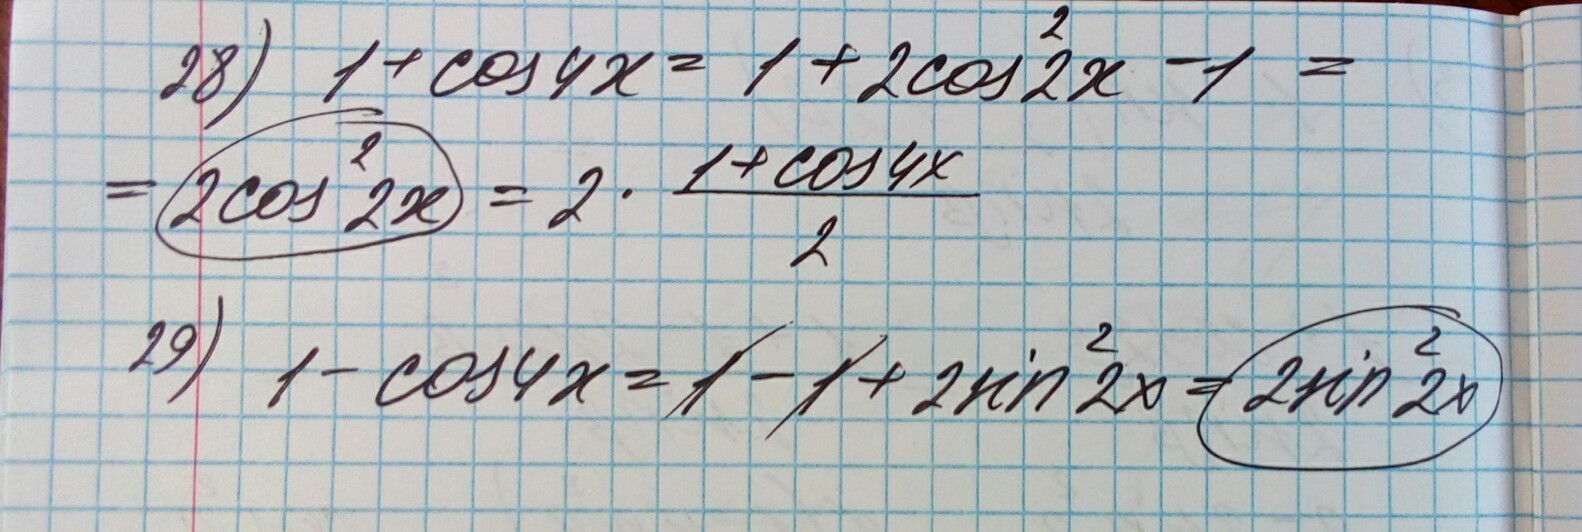 28) 1 + cos4x = 1 + 2cos²2x - 1 =
= 2cos²2x = 2 · (1 + cos4x)/2
29) 1 - cos4x = 1 - 1 + 2sin²2x = 2sin²2x